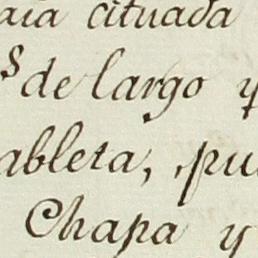 cituada
de largo y
ableta, pu
Chapa y